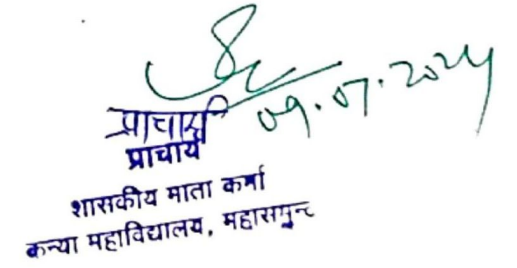 09.07.2024
प्राचार्य
प्राचार्य
शासकीय माता कर्मा
कन्या महाविद्यालय, महासमुन्द